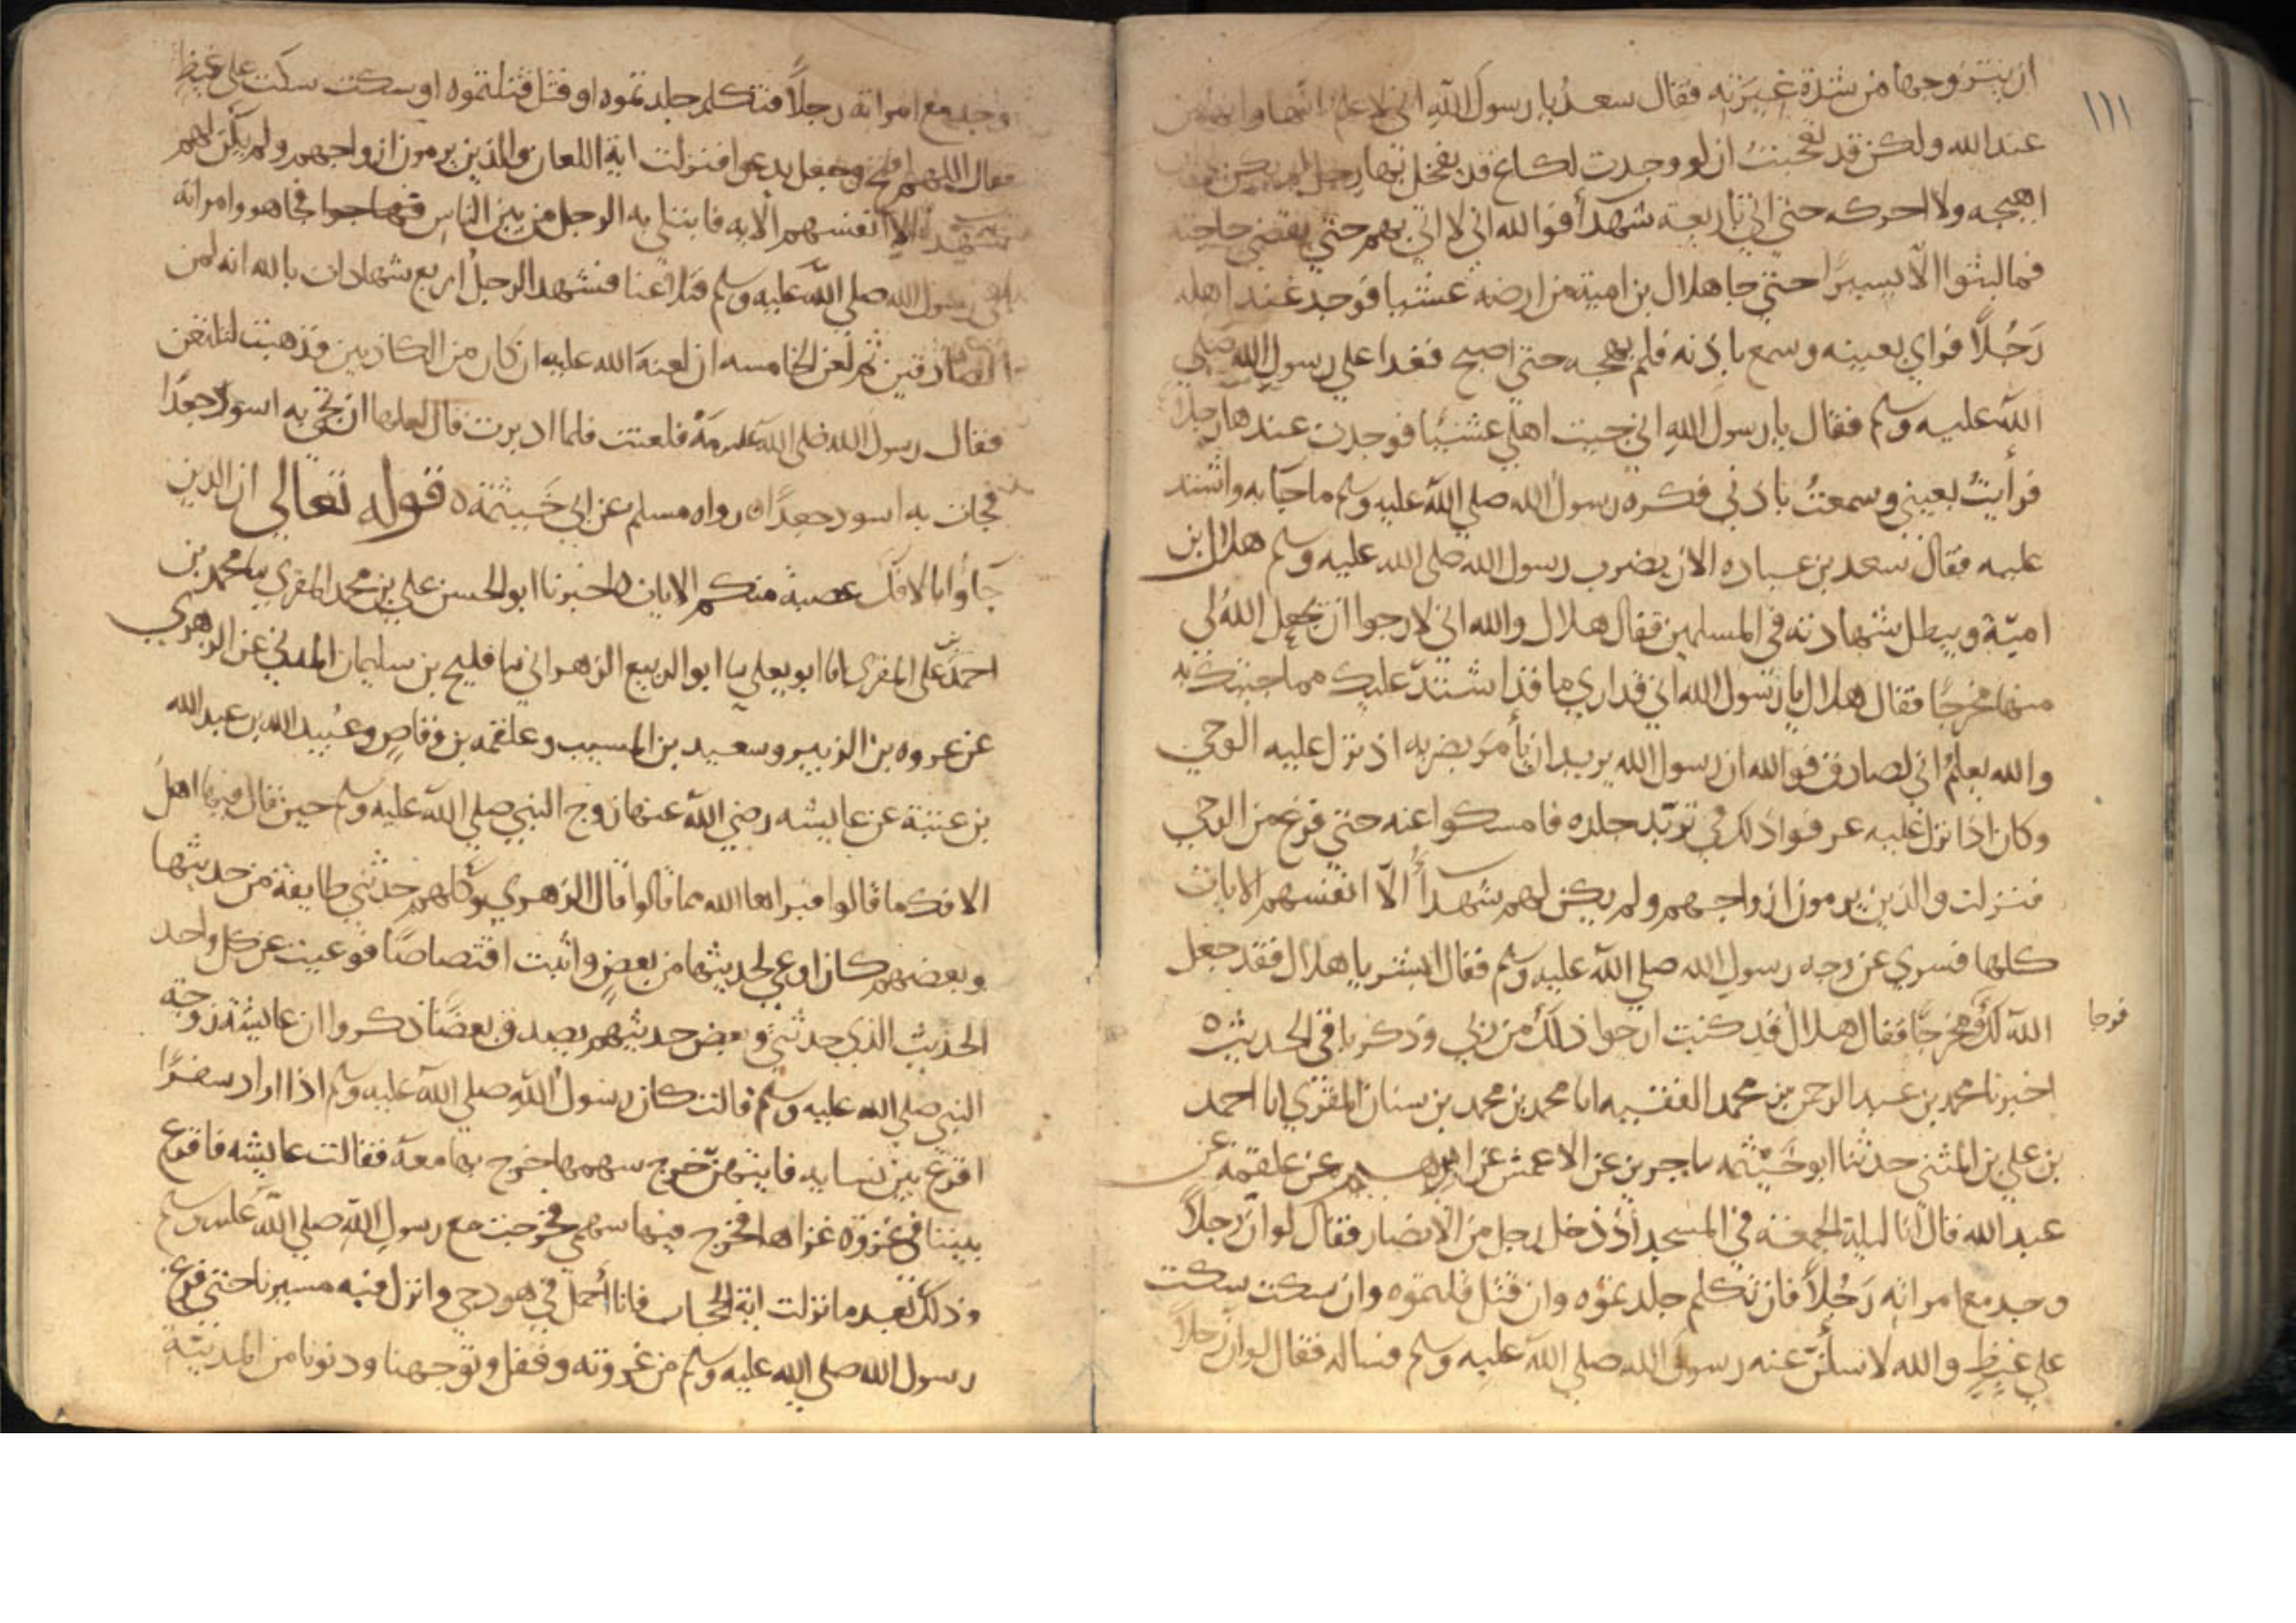 ١١١
ان يتزوجها من شدة غيرته فقال سعد يا رسول الله اني لاعلم انها
عند الله ولكن قد تعجبت ان لو وجدت لكاع قد تفخذها رجل لم يكن
اهيجه ولا احركه حتي اتي باربعة شهدأ فوالله اني لا اتي بهم حتي يقضي حاجته
فما لبثوا الّا يسيرًا حتي جا هلال بن امية من ارضه عشيا فوجد عند اهله
رَجُلًا فراي بعينه وسمع باذنه فلم يهجه حتي اصبح فغدا علي رسول الله صلي
الله عليه وسلم فقال يا رسول الله اني جيت اهلي عشيًا فوجدت عندها رجلا
فرأيتُ بعيني وسمعتُ باذني فكره رسول الله صلي الله عليه وسلم ما جا به واشتد
عليه فقال سعد بن عباده الان يضرب رسول الله صلي الله عليه وسلم هلال بن
اميّة ويبطل شهادته في المسلمين فقال هلال والله اني لارجوا ان يجعل الله لي
منها مخرجًا فقال هلال يا رسول الله اني قد اري ما قد اشتد عليك مما جيتك به
والله يعلم اني لصادق فوالله ان رسول الله يريد ان يأمر بضربه اذ نزل عليه الوحي
وكان اذا نزل عليه عرفوا ذلك في تربّد جلده فامسكوا عنه حتي فرغ من الوحي
فنزلت والذين يرمون ازواجهم ولم يكن لهم شهدأ الّا انفسهم الايات
كلها فسري عن رسول الله صلي الله عليه وسلم فقال ابشر يا هلال فقد جعل
الله لك مخرجًا فقال هلال قد كنت ارجوا ذلك من ربي وذكر باقي الحديث ه
فرجا
اخبرنا محمد بن عبد الرحمن بن محمد الفقيه انا محمد بن محمد بن سنان المقري انا احمد
بن علي بن المثني حدثنا ابو خَيثمه نا جرير عن الاعمش عن ابراهيم عن علقمه عن
عبد الله قال انا ليلة الجمعة في المسجد اذ دخل رجل من الانصار فقال لو ان رجلاً
وجد مع امراته رَجُلاً فان تكلم جلدتموه وان قتل قتلتموه وان سكت سكت
علي غيظٍ والله لاسألنّ عنه رسول الله صلي الله عليه وسلم فساله فقال لو ان رجلاً
وجد مع امراته رجلًا فتكلم جلدتموه او قتل قتلتموه او سكت سكت علي غيظ
فقال اللهم افتح وجعل يدعوا فنزلت اية اللعان والذين يرمون ازواجهم ولم يكن لهم
شهدا الا انفسهم الايه فابتلي به الرجل من بين الناس فجا هو وامراته
الي رسول الله صلي الله عليه وسلم فتلاعنا فشهد الرجل اربع شهادات بالله انه لمن
الصادقين ثم لعن الخامسه ان لعنة الله عليه ان كان من الكاذبين فذهبت لتلتعن
فقال رسول الله صلي الله عليه مَهْ فلعنت فلما ادبرت قال لعلها ان تجي به اسود جعدًا
فجات به اسود جعدًا رواه مسلم عن ابي خَيثمة ه قوله تعالي ان الذين
جَاؤا بالافك عصبة منكم الايات اخبرنا ابو الحسن علي بن محمد المقري نا محمد بن
احمد بن علي المقري انا ابو يعلي نا ابو الربيع الزهراني نا فليح بن سليمان المدني عن الزهري
عن عروه بن الزبير وسعيد بن المسيب وعلقمه بن وقاصٍ وعُبيد الله بن عبد الله
بن عتبة عن عايشه رضي الله عنها زوج النبي صلي الله عليه وسلم حين قال فيها اهل
الافك ما قالوا فبراها الله مما قالوا قال الزهري وكلهم حدثني طايفة من حديثها
وبعضهم كان اوعي لحديثها من بعضٍ واثبت اقتصاصًا فوعيت عن كل واحد
الحديث الذي حدثني وبعض حديثهم يصدق بعضًا ذكروا ان عايشة زوجة
النبي صلي الله عليه وسلم قالت كان رسول الله صلي الله عليه وسلم اذا اراد سفرًا
اقرع بين نسايه فايتهنّ خرج سهمها خرج بها معه فقالت عايشه فاقرع
بيننا في غزوة غزاها فخرج فيها سهمي فخرجت مع رسول الله صلي الله عليه وسلم
وذلك بعد ما نزلت اية الحجاب فانا أُحمل في هودجي وانزل فيه مسيرنا حتي فرغ
رسول الله صلي الله عليه وسلم من غزوته وقفل وتوجهنا ودنونا من المدينة